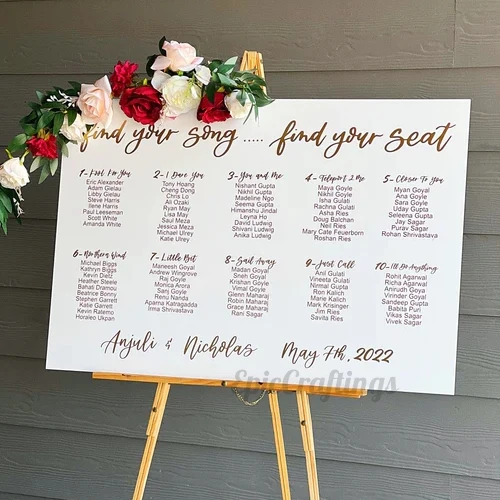 find your song ..... find your seat
1- Fool For You
Eric Alexander
Adam Gielau
Libby Gielau
Steve Harris
Ilene Harris
Paul Leeseman
Scott White
Amanda White
2- I Dare You
Tony Hoang
Cheng Dong
Chris Lo
Ali Ozaki
Ryan May
Lisa May
Saul Meza
Jessica Meza
Michael Ulrey
Katie Ulrey
3- You and Me
Nishant Gupta
Nikhil Gupta
Madeline Ngo
Seema Gupta
Himanshu Jindal
Leyna Ho
David Ludwig
Shivani Ludwig
Anika Ludwig
4- Teleport 2 Me
Maya Goyle
Nikhil Goyle
Isha Gulati
Rachna Gulati
Asha Ries
Doug Balchan
Neil Ries
Mary Cate Feuerborn
Roshan Ries
5- Closer To You
Myan Goyal
Ana Goyle
Sara Goyle
Uday Goyle
Seleena Goyle
Jay Sagar
Purav Sagar
Rohan Shrivastava
6- Northern Wind
Michael Biggs
Kathryn Biggs
Kevin Dietz
Heather Steele
Bahati Dramou
Beatrice Bonny
Stephen Garrett
Katie Garrett
Kevin Ratemo
Horaleo Ukpan
7- Little Bit
Maneesh Goyal
Andrew Wingrove
Raj Goyle
Monica Arora
Sanj Goyle
Renu Nanda
Aparna Katragadda
Irma Shrivastava
8- Sail Away
Madan Goyal
Sneh Goyal
Krishan Goyal
Vimal Goyal
Glenn Maharaj
Robin Maharaj
Grace Maharaj
Rani Sagar
9- Just Call
Anil Gulati
Vineeta Gulati
Nirmal Gupta
Ron Kalich
Marie Kalich
Mark Krisinger
Jim Ries
Savita Ries
10- I'll Do Anything
Rohit Agarwal
Richa Agarwal
Anirudh Goyal
Virinder Goyal
Sandeep Gupta
Babita Puri
Vikas Sagar
Vivek Sagar
Anjuli & Nicholas May 7th, 2022
EpicCraftings